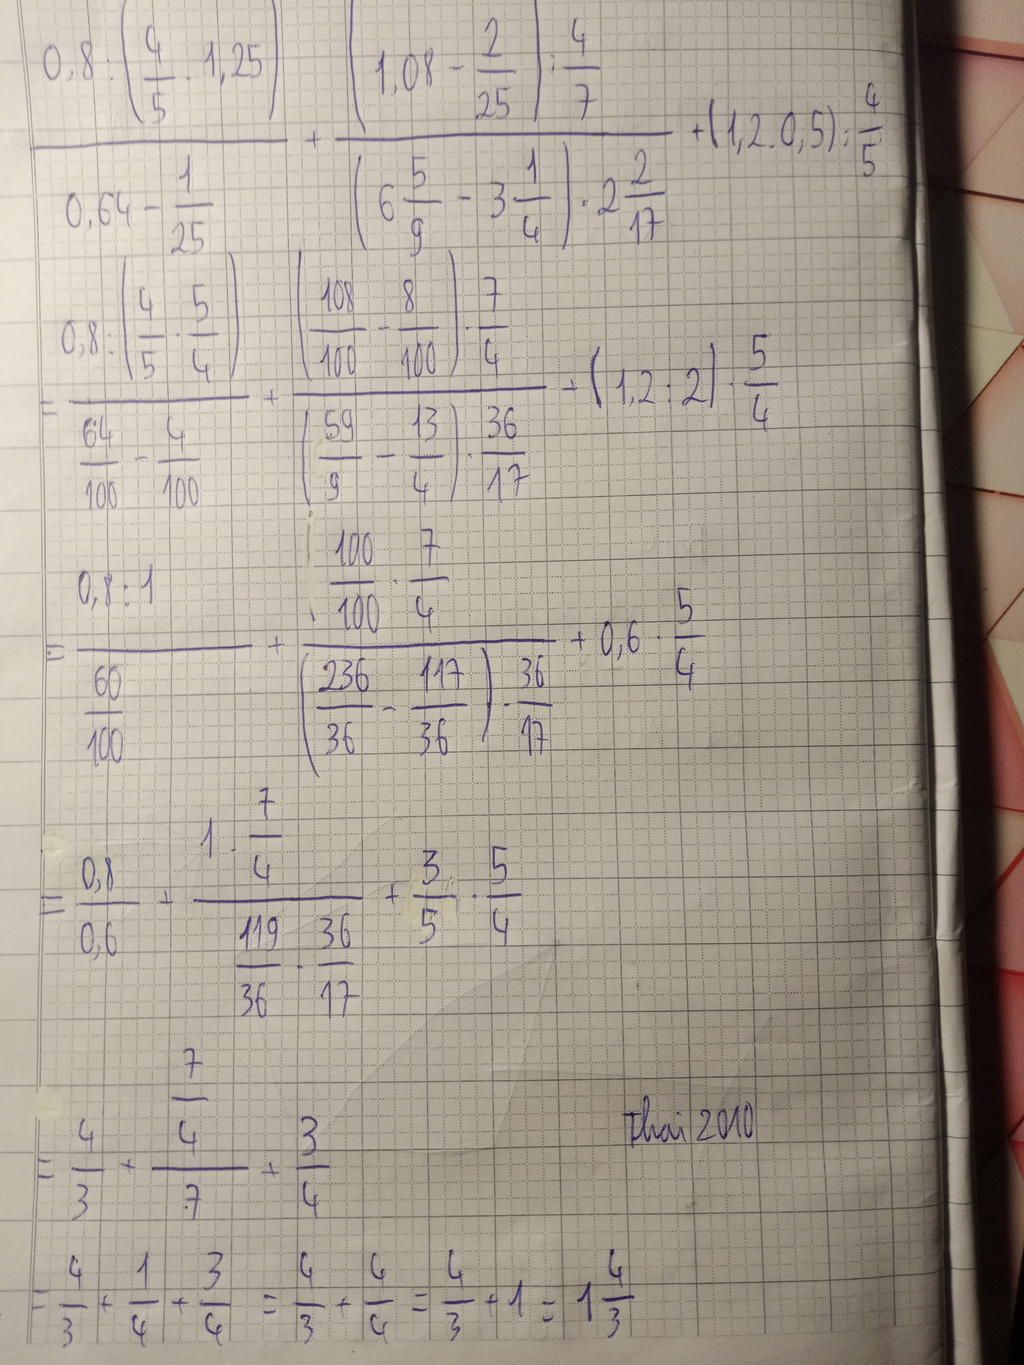 0,8 : (4/5 . 1,25) / (0,64 - 1/25) + (1,08 - 2/25) : 4/7 / ((6 5/9 - 3 1/4) . 2 2/17) + (1,2 . 0,5) : 4/5
= 0,8 : (4/5 . 5/4) / (64/100 - 4/100) + (108/100 - 8/100) . 7/4 / ((59/9 - 13/4) . 36/17) + (1,2 : 2) . 5/4
= 0,8 : 1 / (60/100) + (100/100 . 7/4) / ((236/36 - 117/36) . 36/17) + 0,6 . 5/4
= 0,8/0,6 + (1 . 7/4) / (119/36 . 36/17) + 3/5 . 5/4
= 4/3 + (7/4)/7 + 3/4
Thai 2010
= 4/3 + 1/4 + 3/4 = 4/3 + 4/4 = 4/3 + 1 = 1 4/3